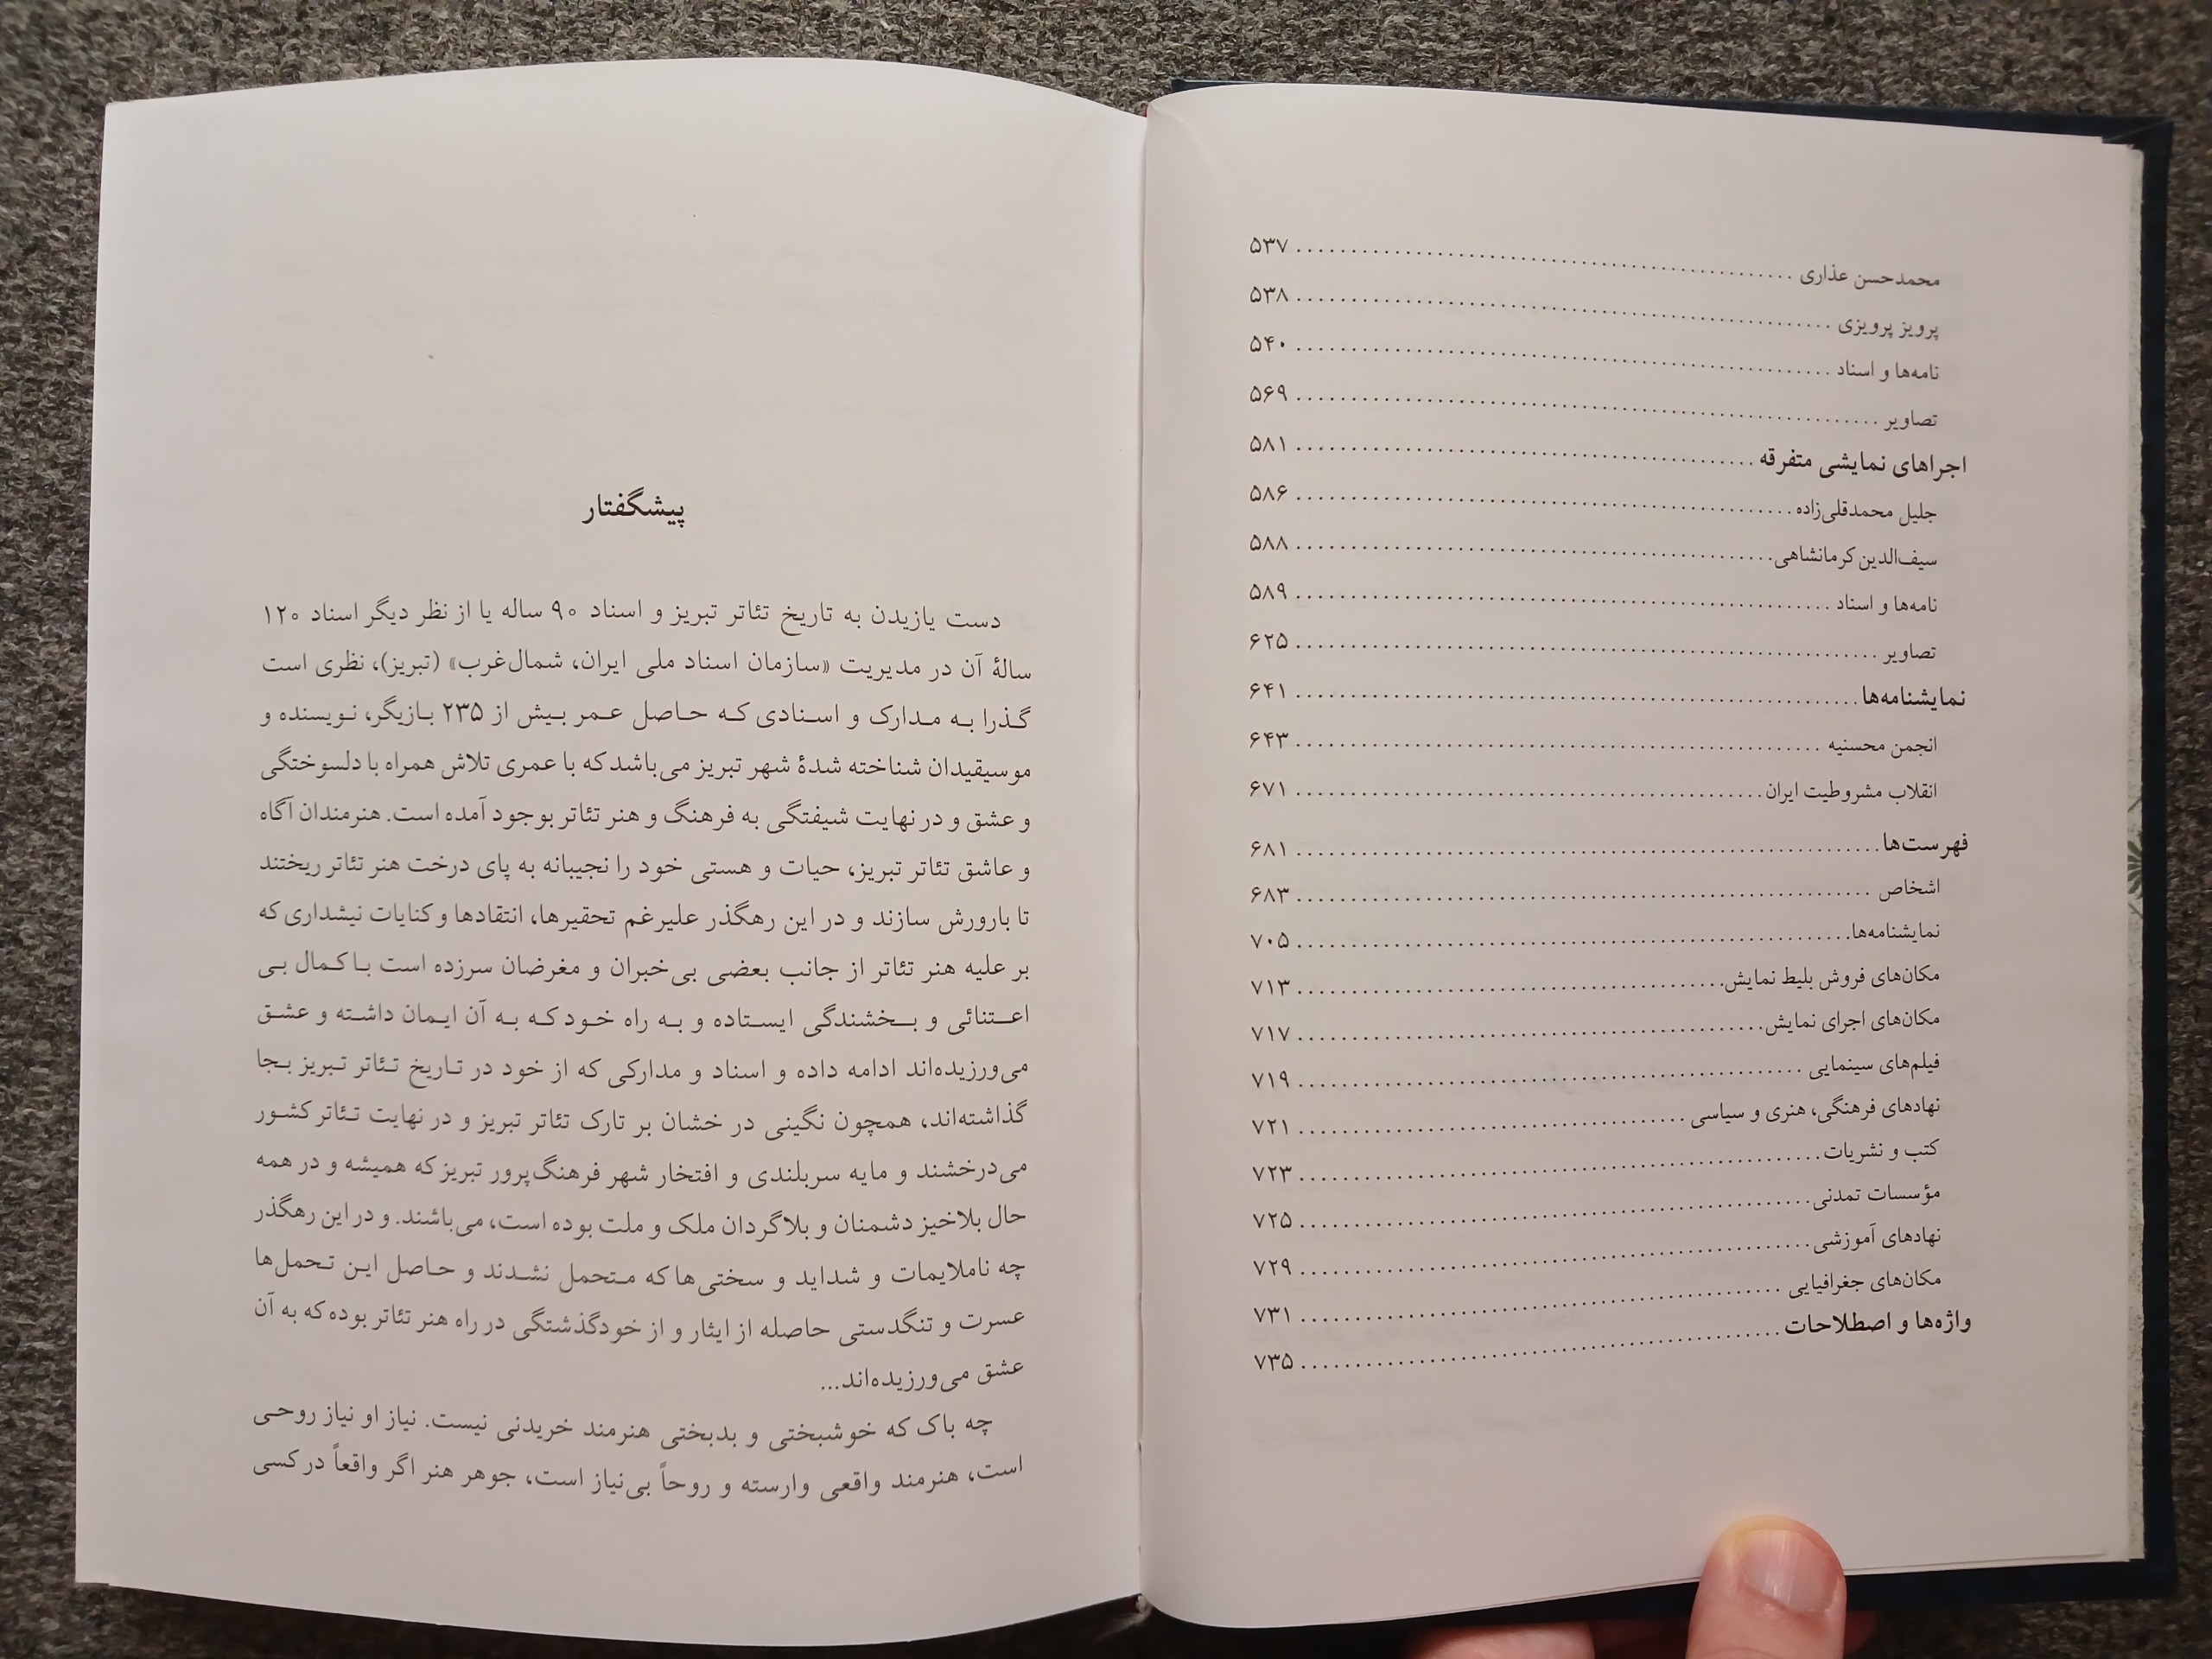 محمدحسن عذاری ........ ۵۳۷
پرویز پرویزی ........ ۵۳۸
نامه‌ها و اسناد ........ ۵۴۰
تصاویر ........ ۵۶۹
اجراهای نمایشی متفرقه ........ ۵۸۱
جلیل محمدقلی‌زاده ........ ۵۸۶
سیف‌الدین کرمانشاهی ........ ۵۸۸
نامه‌ها و اسناد ........ ۵۸۹
تصاویر ........ ۶۲۵
نمایشنامه‌ها ........ ۶۴۱
انجمن محسنیه ........ ۶۴۳
انقلاب مشروطیت ایران ........ ۶۷۱
فهرست‌ها ........ ۶۸۱
اشخاص ........ ۶۸۳
نمایشنامه‌ها ........ ۷۰۵
مکان‌های فروش بلیط نمایش ........ ۷۱۳
مکان‌های اجرای نمایش ........ ۷۱۷
فیلم‌های سینمایی ........ ۷۱۹
نهادهای فرهنگی، هنری و سیاسی ........ ۷۲۱
کتب و نشریات ........ ۷۲۳
مؤسسات تمدنی ........ ۷۲۵
نهادهای آموزشی ........ ۷۲۹
مکان‌های جغرافیایی ........ ۷۳۱
واژه‌ها و اصطلاحات ........ ۷۳۵
پیشگفتار
دست یازیدن به تاریخ تئاتر تبریز و اسناد ۹۰ ساله یا از نظر دیگر اسناد ۱۲۰
سالهٔ آن در مدیریت «سازمان اسناد ملی ایران، شمال‌غرب» (تبریز)، نظری است
گذرا به مدارک و اسنادی که حاصل عمر بیش از ۲۳۵ بازیگر، نویسنده و
موسیقیدان شناخته شدهٔ شهر تبریز می‌باشد که با عمری تلاش همراه با دلسوختگی
و عشق و در نهایت شیفتگی به فرهنگ و هنر تئاتر بوجود آمده است. هنرمندان آگاه
و عاشق تئاتر تبریز، حیات و هستی خود را نجیبانه به پای درخت هنر تئاتر ریختند
تا بارورش سازند و در این رهگذر علیرغم تحقیرها، انتقادها و کنایات نیشداری که
بر علیه هنر تئاتر از جانب بعضی بی‌خبران و مغرضان سرزده است با کمال بی
اعتنائی و بخشندگی ایستاده و به راه خود که به آن ایمان داشته و عشق
می‌ورزیده‌اند ادامه داده و اسناد و مدارکی که از خود در تاریخ تئاتر تبریز بجا
گذاشته‌اند، همچون نگینی در خشان بر تارک تئاتر تبریز و در نهایت تئاتر کشور
می‌درخشند و مایه سربلندی و افتخار شهر فرهنگ‌پرور تبریز که همیشه و در همه
حال بلاخیز دشمنان و بلاگردان ملک و ملت بوده است، می‌باشند. و در این رهگذر
چه ناملایمات و شداید و سختی‌ها که متحمل نشدند و حاصل این تحمل‌ها
عسرت و تنگدستی حاصله از ایثار و از خودگذشتگی در راه هنر تئاتر بوده که به آن
عشق می‌ورزیده‌اند...
چه باک که خوشبختی و بدبختی هنرمند خریدنی نیست. نیاز او نیاز روحی
است، هنرمند واقعی وارسته و روحاً بی‌نیاز است، جوهر هنر اگر واقعاً در کسی